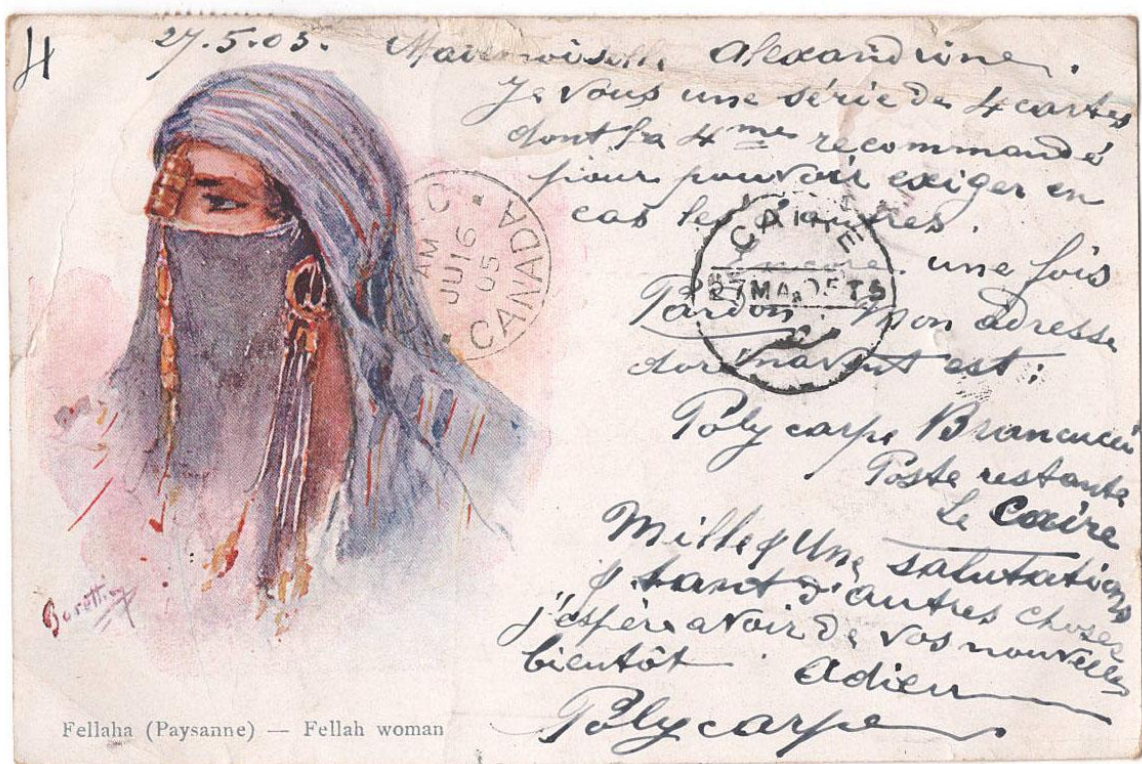 4
27.5.05. Mademoiselle Alexandrine.
Je vous une série de 4 cartes
dont la 4me recommandé
pour pouvoir exiger en
cas les autres.
Encore une fois
Pardon. Mon adresse
dorénavant est:
Polycarpe Brancucci
Poste restante
Le Caire
Mille & Une salutations
& tant d'autres choses
j'espère avoir de vos nouvelles
bientôt. Adieu
Polycarpe
AM
JU 16
05
CANADA
CAIRE
27 MA 05 T5
Fellaha (Paysanne) — Fellah woman